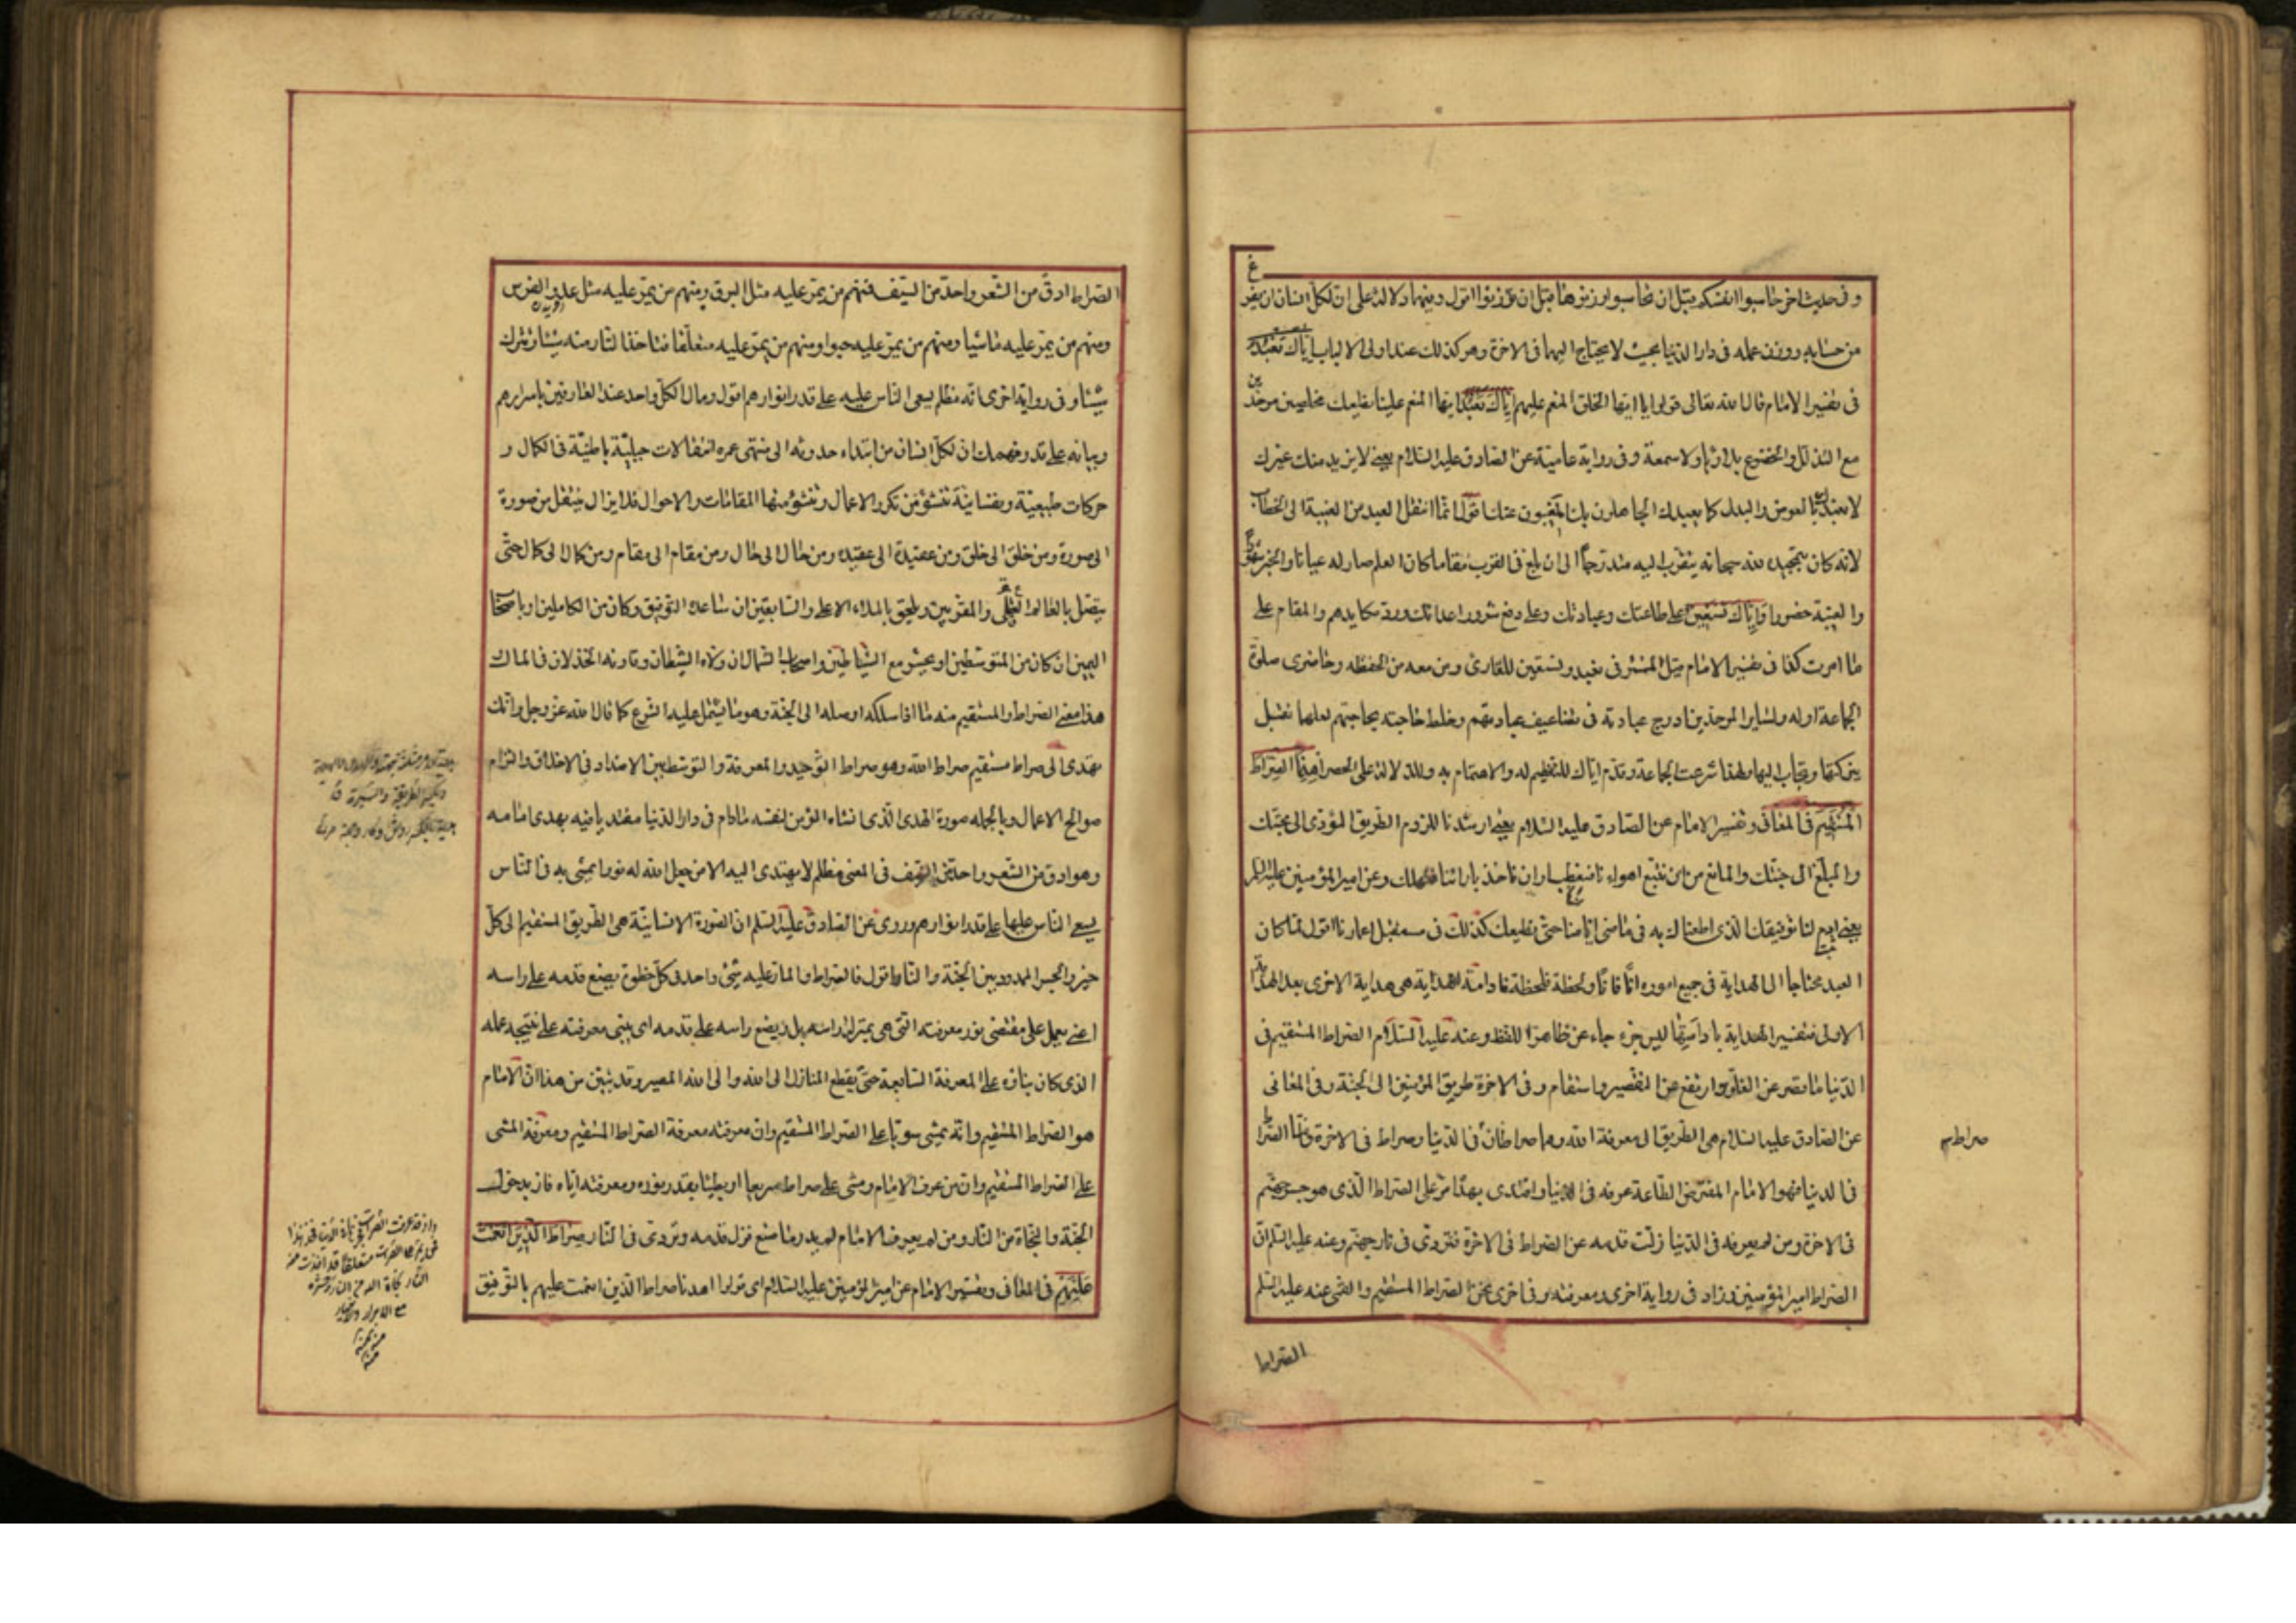 وفى حديث اخر حاسبوا انفسكم قبل ان تحاسبوا وزنوها قبل ان توزنوا اقول وفيهما دلالة على ان لكل انسان ان يفرغ
من حسابه ووزن عمله فى دار الدنيا بحيث لا يحتاج اليهما فى الاخرة وهو كذلك عند اولى الالباب اياك نعبد
فى تفسير الامام قال الله تعالى قولوا يا ايها الخلق المنعم عليهم اياك نعبد ايها المنعم علينا نطيعك مخلصين موحدين
مع التذلل والخضوع بلا رياء ولا سمعة وفى رواية عامية عن الصادق عليه السلام يعنى لا نريد منك غيرك
لا نعبدك بالعوض والبدل كما يعبدك الجاهلون بك المغيبون عنك اقول انما انتقل العبد من الغيبة الى الخطاب
لانه كان بتمجيده لله سبحانه يتقرب اليه متدرجا الى ان بلغ فى القرب مقاما كان العلم صار له عيانا والخبر شهودا
والغيبة حضورا واياك نستعين على طاعتك وعبادتك وعلى دفع شرور اعدائك ورد مكايدهم والمقام على
ما امرت كذا فى تفسير الامام قيل المستتر فى نعبد ونستعين للقارئ ومن معه من الحفظة وحاضرى صلوة
الجماعة او له ولساير الموحدين ادرج عبادته فى تضاعيف عبادتهم وخلط حاجته بحاجتهم لعلها تقبل
ببركتها وتجاب اليها ولهذا شرعت الجماعة وقدم اياك للتعظيم له والاهتمام به وللدلالة على الحصر اهدنا الصراط
المستقيم فى المعانى وتفسير الامام عن الصادق عليه السلام يعنى ارشدنا للزوم الطريق المؤدى الى محبتك
والمبلغ الى جنتك والمانع من ان نتبع اهواءنا فنعطب او ان ناخذ بارائنا فنهلك وعن امير المؤمنين عليه السلم
يعنى ادم لنا توفيقك الذى اطعناك به فى ماضى ايامنا حتى نطيعك كذلك فى مستقبل اعمارنا اقول لما كان
العبد محتاجا الى الهداية فى جميع اموره انا فانا ولحظة فلحظة فادامة الهداية هى هداية الاخرى بعد الهداية
الاولى فتفسير الهداية بادامتها ليس خروجا عن ظاهر اللفظ وعنه عليه السلام الصراط المستقيم فى
الدنيا ما قصر عن الغلو وارتفع عن التقصير واستقام وفى الاخرة طريق المؤمنين الى الجنة وفى المعانى
عن الصادق عليه السلام هى الطريق الى معرفة الله وهما صراطان فى الدنيا وصراط فى الاخرة فاما الصراط
صراط
فى الدنيا فهو الامام المفترض الطاعة من عرفه فى الدنيا واقتدى بهداه مر على الصراط الذى هو جسر جهنم
فى الاخرة ومن لم يعرفه فى الدنيا زلت قدمه عن الصراط فى الاخرة فتردى فى نار جهنم وعنه عليه السلم ان
الصراط امير المؤمنين وزاد فى رواية اخرى ومعرفته وفى اخرى نحن الصراط المستقيم والقمى عنه عليه السلم
الصراط
الصراط ادق من الشعر واحد من السيف فمنهم من يمر عليه مثل البرق ومنهم من يمر عليه مثل عدو الفرس
ومنهم من يمر عليه ماشيا ومنهم من يمر عليه حبوا ومنهم من يمر عليه متعلقا فتاخذ النار منه شيئا وتترك
شيئا وفى رواية اخرى انه مظلم يسعى الناس عليه على قدر انوارهم اقول ومال الكل واحد عند العارفين باسرارهم
وبيانه على قدر فهمك ان لكل انسان من ابتداء حدوثه الى منتهى عمره انتقالات جبلية باطنية فى الكمال و
حركات طبيعية ونفسانية تنشؤ من تكرر الاعمال وتنشؤ منها المقامات والاحوال فلا يزال ينتقل من صورة
الى صورة ومن خلق الى خلق ومن عقيدة الى عقيدة ومن حال الى حال ومن مقام الى مقام ومن كمال الى كمال حتى
يتصل بالعالم العقلى والمقربين ويلحق بالملاء الاعلى والسابقين ان ساعده التوفيق وكان من الكاملين او باصحاب
اليمين ان كان من المتوسطين او يحشر مع الشياطين واصحاب الشمال ان ولاه الشيطان وقارنه الخذلان فى المال
هذا معنى الصراط والمستقيم منه ما اذا سلكه اوصله الى الجنة وهو ما يشتمل عليه الشرع كما قال الله عز وجل وانك
تهدى الى صراط مستقيم صراط الله وهو صراط التوحيد والمعرفة والتوسط بين الاضداد فى الاخلاق والتزام
صوالح الاعمال وبالجملة صورة الهدى الذى انشاه المؤمن لنفسه مادام فى دار الدنيا مقتديا فيه بهدى امامه
وهو ادق من الشعر واحد من السيف فى المعنى مظلم لا يهتدى اليه الا من جعل الله له نورا يمشى به فى الناس
يسعى الناس عليها على قدر انوارهم وروى عن الصادق عليه السلم ان الصورة الانسانية هى الطريق المستقيم الى كل
خير والجسر الممدود بين الجنة والنار اقول فالصراط والمار عليه شئ واحد فى كل خطوة يضع قدمه على راسه
اعنى يعمل على مقتضى نور معرفته التى هى بمنزلة راسه بل يضع راسه على قدمه اى يبنى معرفته على نتيجة عمله
الذى كان بناؤه على المعرفة السابقة حتى يقطع المنازل الى الله والى الله المصير وقد تبين من هذا ان الامام
هو الصراط المستقيم وانه يمشى سويا على الصراط المستقيم وان معرفته معرفة الصراط المستقيم ومعرفة المشى
على الصراط المستقيم وان من عرف الامام ومشى على صراطه سريعا او بطيئا بقدر نوره ومعرفته اياه فاز بدخول
الجنة والنجاة من النار ومن لم يعرف الامام لم يدر ما صنع فزل قدمه وتردى فى النار صراط الذين انعمت
عليهم فى المعانى وتفسير الامام عن امير المؤمنين عليه السلام اى قولوا اهدنا صراط الذين انعمت عليهم بالتوفيق